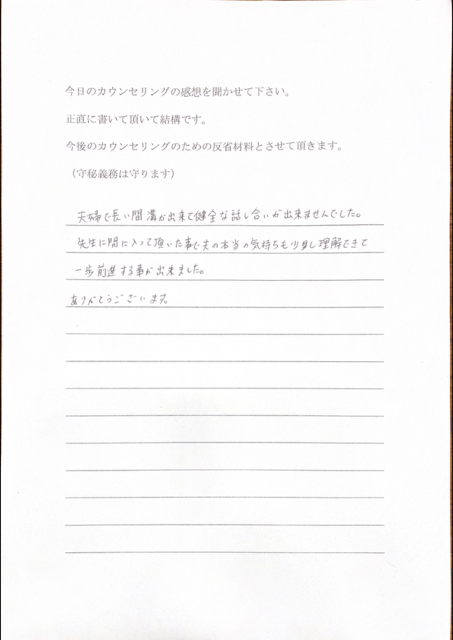 今日のカウンセリングの感想を聞かせて下さい。
正直に書いて頂いて結構です。
今後のカウンセリングのための反省材料とさせて頂きます。
（守秘義務は守ります）
夫婦で長い間溝が出来て健全な話し合いが出来ませんでした。
先生に間に入って頂いた事で夫の本当の気持ちも少し理解できて
一歩前進する事が出来ました。
ありがとうございます。